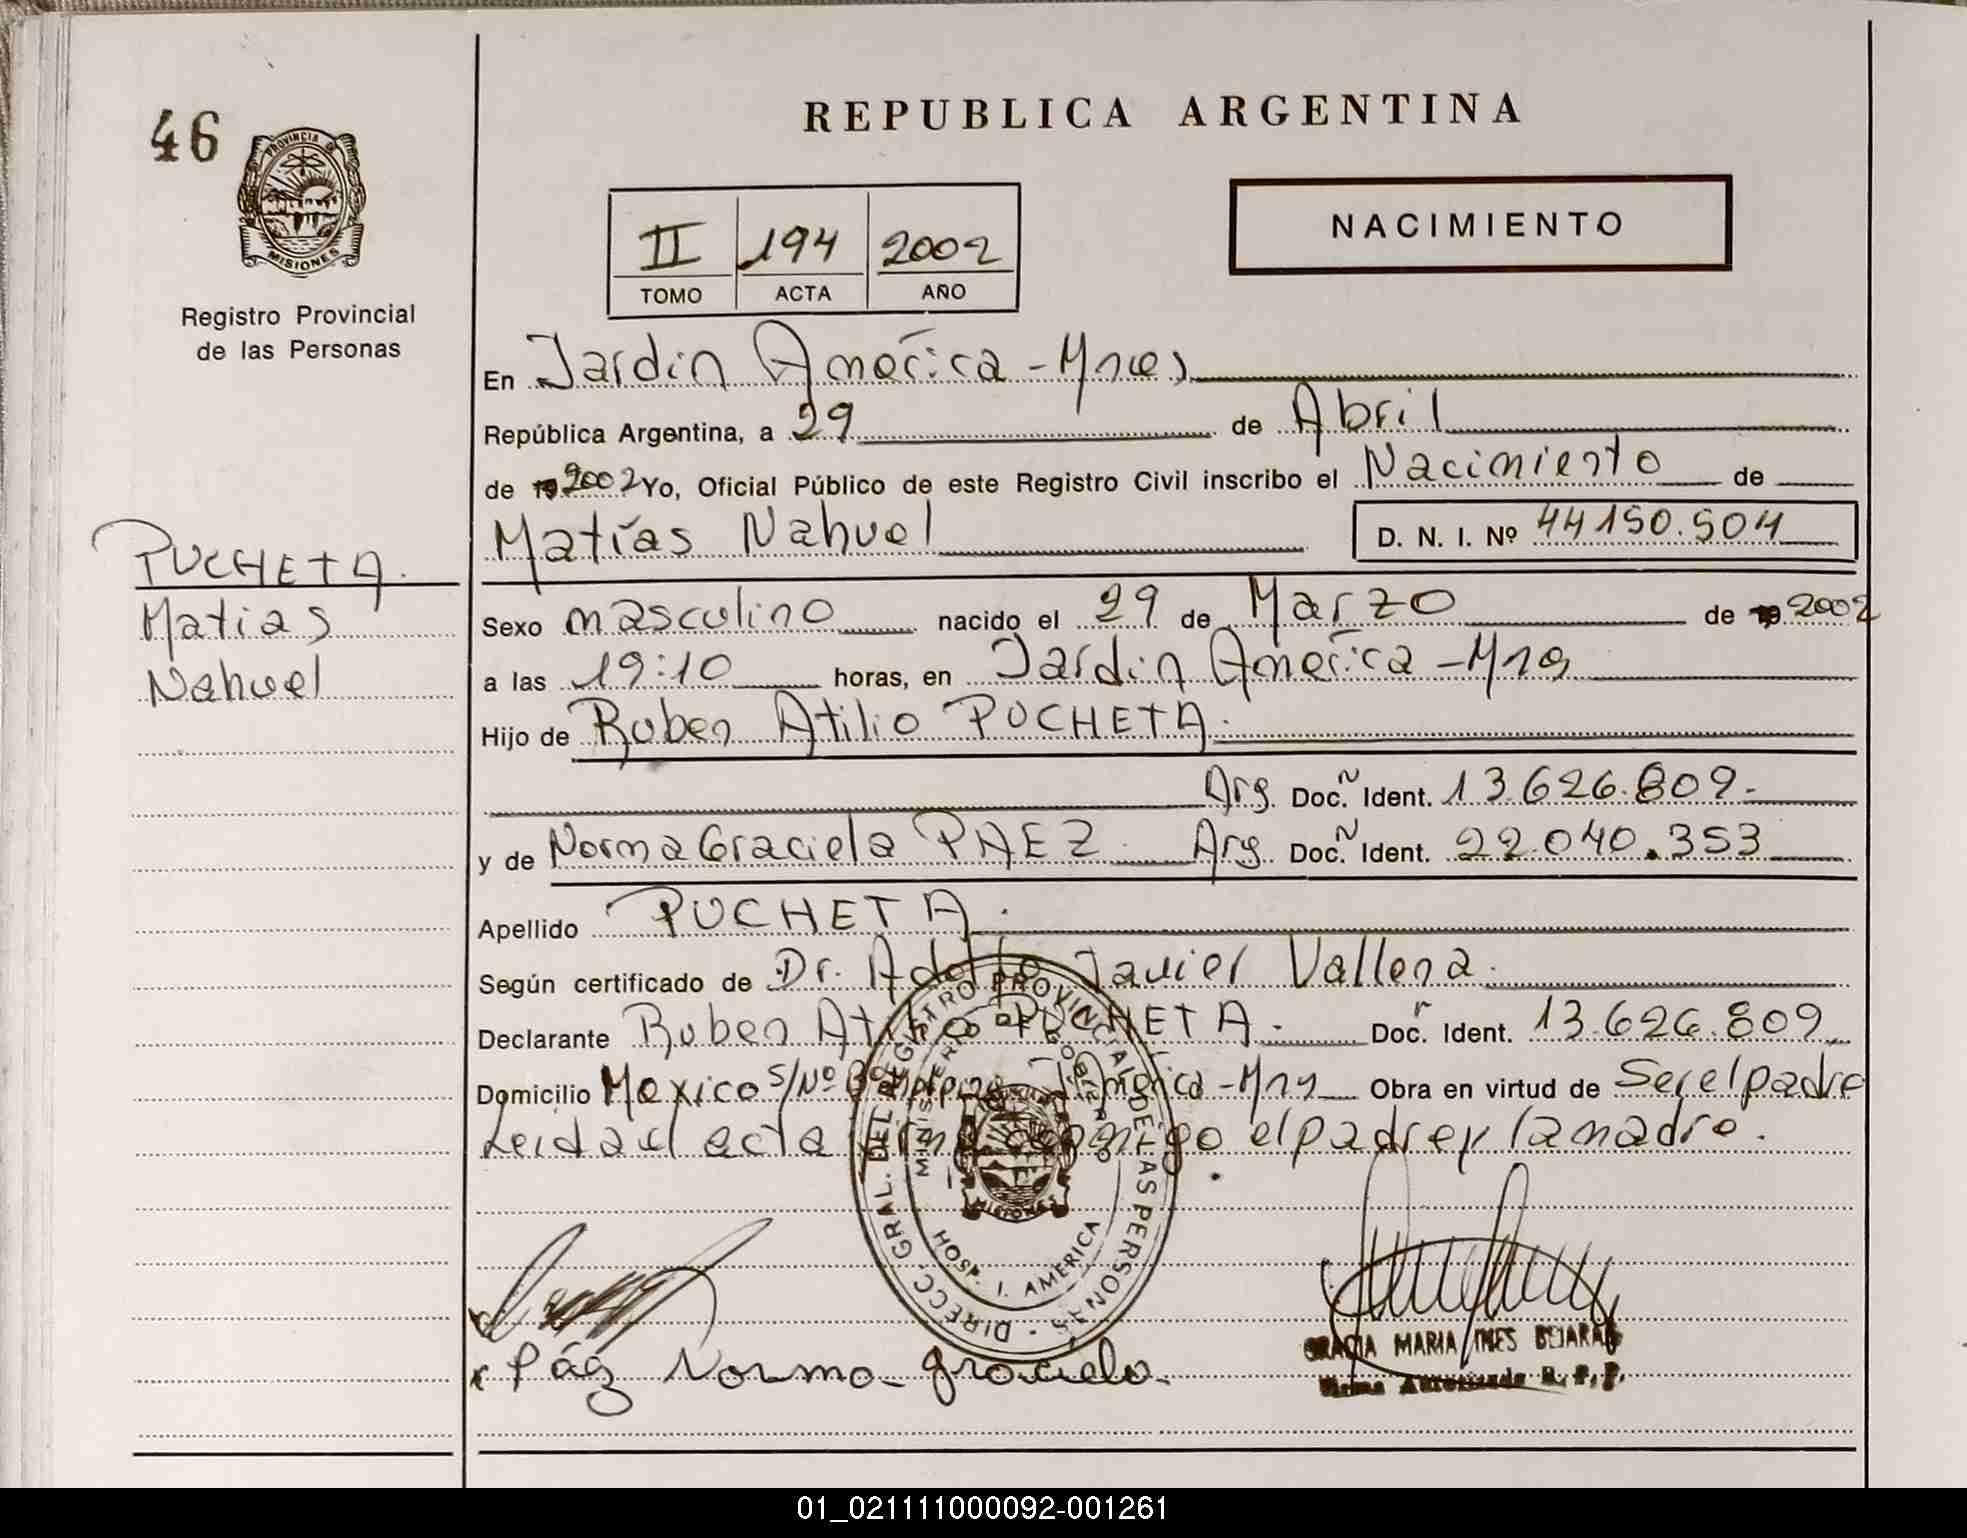 46
PROVINCIA DE
MISIONES
Registro Provincial
de las Personas
REPUBLICA ARGENTINA
NACIMIENTO
II 194 2002
TOMO ACTA AÑO
En Jardín América - Mnes
República Argentina, a 29 de Abril
de 2002 Yo, Oficial Público de este Registro Civil inscribo el Nacimiento de
Matías Nahuel D. N. I. Nº 44150.504
PUCHETA.
Matias
Nahuel
Sexo masculino nacido el 29 de Marzo de 2002
a las 19:10 horas, en Jardín América - Mns
Hijo de Ruben Atilio PUCHETA.
Arg. Doc. Ident. 13.626.809.-
y de Norma Graciela PAEZ Arg. Doc. Ident. 22.040.353
Apellido PUCHETA.
Según certificado de Dr. Adolfo Javier Vallena.
Declarante Ruben Atilio PUCHETA. Doc. Ident. 13.626.809
Domicilio Mexico S/Nº América - Mns Obra en virtud de Ser el padre
Leida el acta conmigo el padre y la madre.
DIRECC. GRAL. DEL REGISTRO PROVINCIAL DE LAS PERSONAS
MINISTERIO DE GOBIERNO
MISIONES
HOSP. J. AMERICA
Páz Norma graciela.
GRACIA MARIA INES BEJARANO
Firma Autorizada R. P. P.
01_021111000092-001261